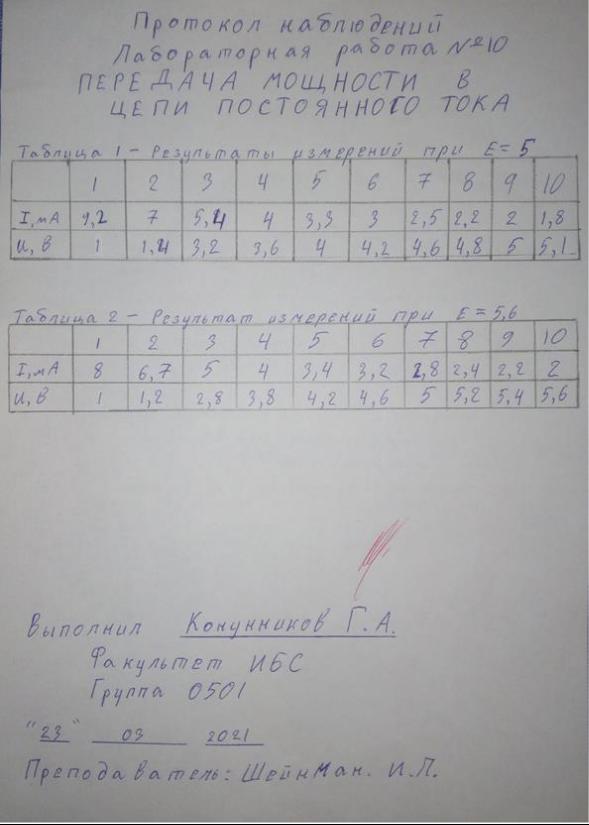 Протокол наблюдений
Лабораторная работа №10
ПЕРЕДАЧА МОЩНОСТИ В
ЦЕПИ ПОСТОЯННОГО ТОКА
Таблица 1 - Результаты измерений при E = 5
1 2 3 4 5 6 7 8 9 10
I, мА 9,2 7 5,4 4 3,3 3 2,5 2,2 2 1,8
U, В 1 1,4 3,2 3,6 4 4,2 4,6 4,8 5 5,1
Таблица 2 - Результат измерений при E = 5,6
1 2 3 4 5 6 7 8 9 10
I, мА 8 6,7 5 4 3,4 3,2 2,8 2,4 2,2 2
U, В 1 1,2 2,8 3,8 4,2 4,6 5 5,2 5,4 5,6
Выполнил Конунников Г.А.
Факультет ИБС
Группа 0501
"23" 03 2021
Преподаватель: Шейнман. И.Л.